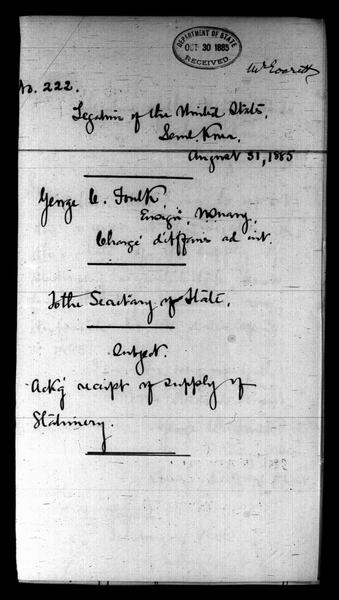 DEPARTMENT OF STATE
OCT 30 1885
RECEIVED
Mr Everett
No. 222.
Legation of the United States,
Seoul, Korea,
August 31, 1885
George C. Foulk,
Ensign, U.S. Navy,
Chargé d'Affaires ad int.
To the Secretary of State.
Subject.
Ack'g receipt of supply of
Stationery.